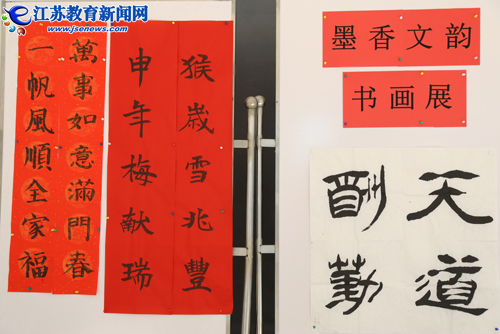 江苏教育新闻网
www.jsenews.com
萬事如意滿門春
一帆風順全家福
猴歲雪兆豐
申年梅献瑞
墨香文韵
书画展
天道
酬勤